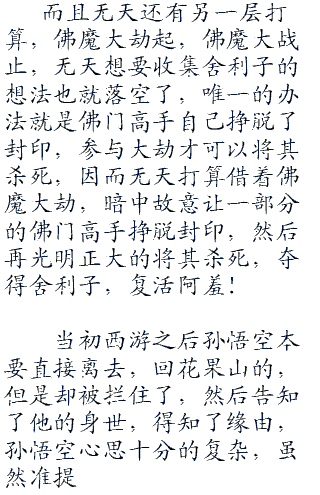 而且无天还有另一层打
算，佛魔大劫起，佛魔大战
止，无天想要收集舍利子的
想法也就落空了，唯一的办
法就是佛门高手自己挣脱了
封印，参与大劫才可以将其
杀死，因而无天打算借着佛
魔大劫，暗中故意让一部分
的佛门高手挣脱封印，然后
再光明正大的将其杀死，夺
得舍利子，复活阿羞！
当初西游之后孙悟空本
要直接离去，回花果山的，
但是却被拦住了，然后告知
了他的身世，得知了缘由，
孙悟空心思十分的复杂，虽
然准提